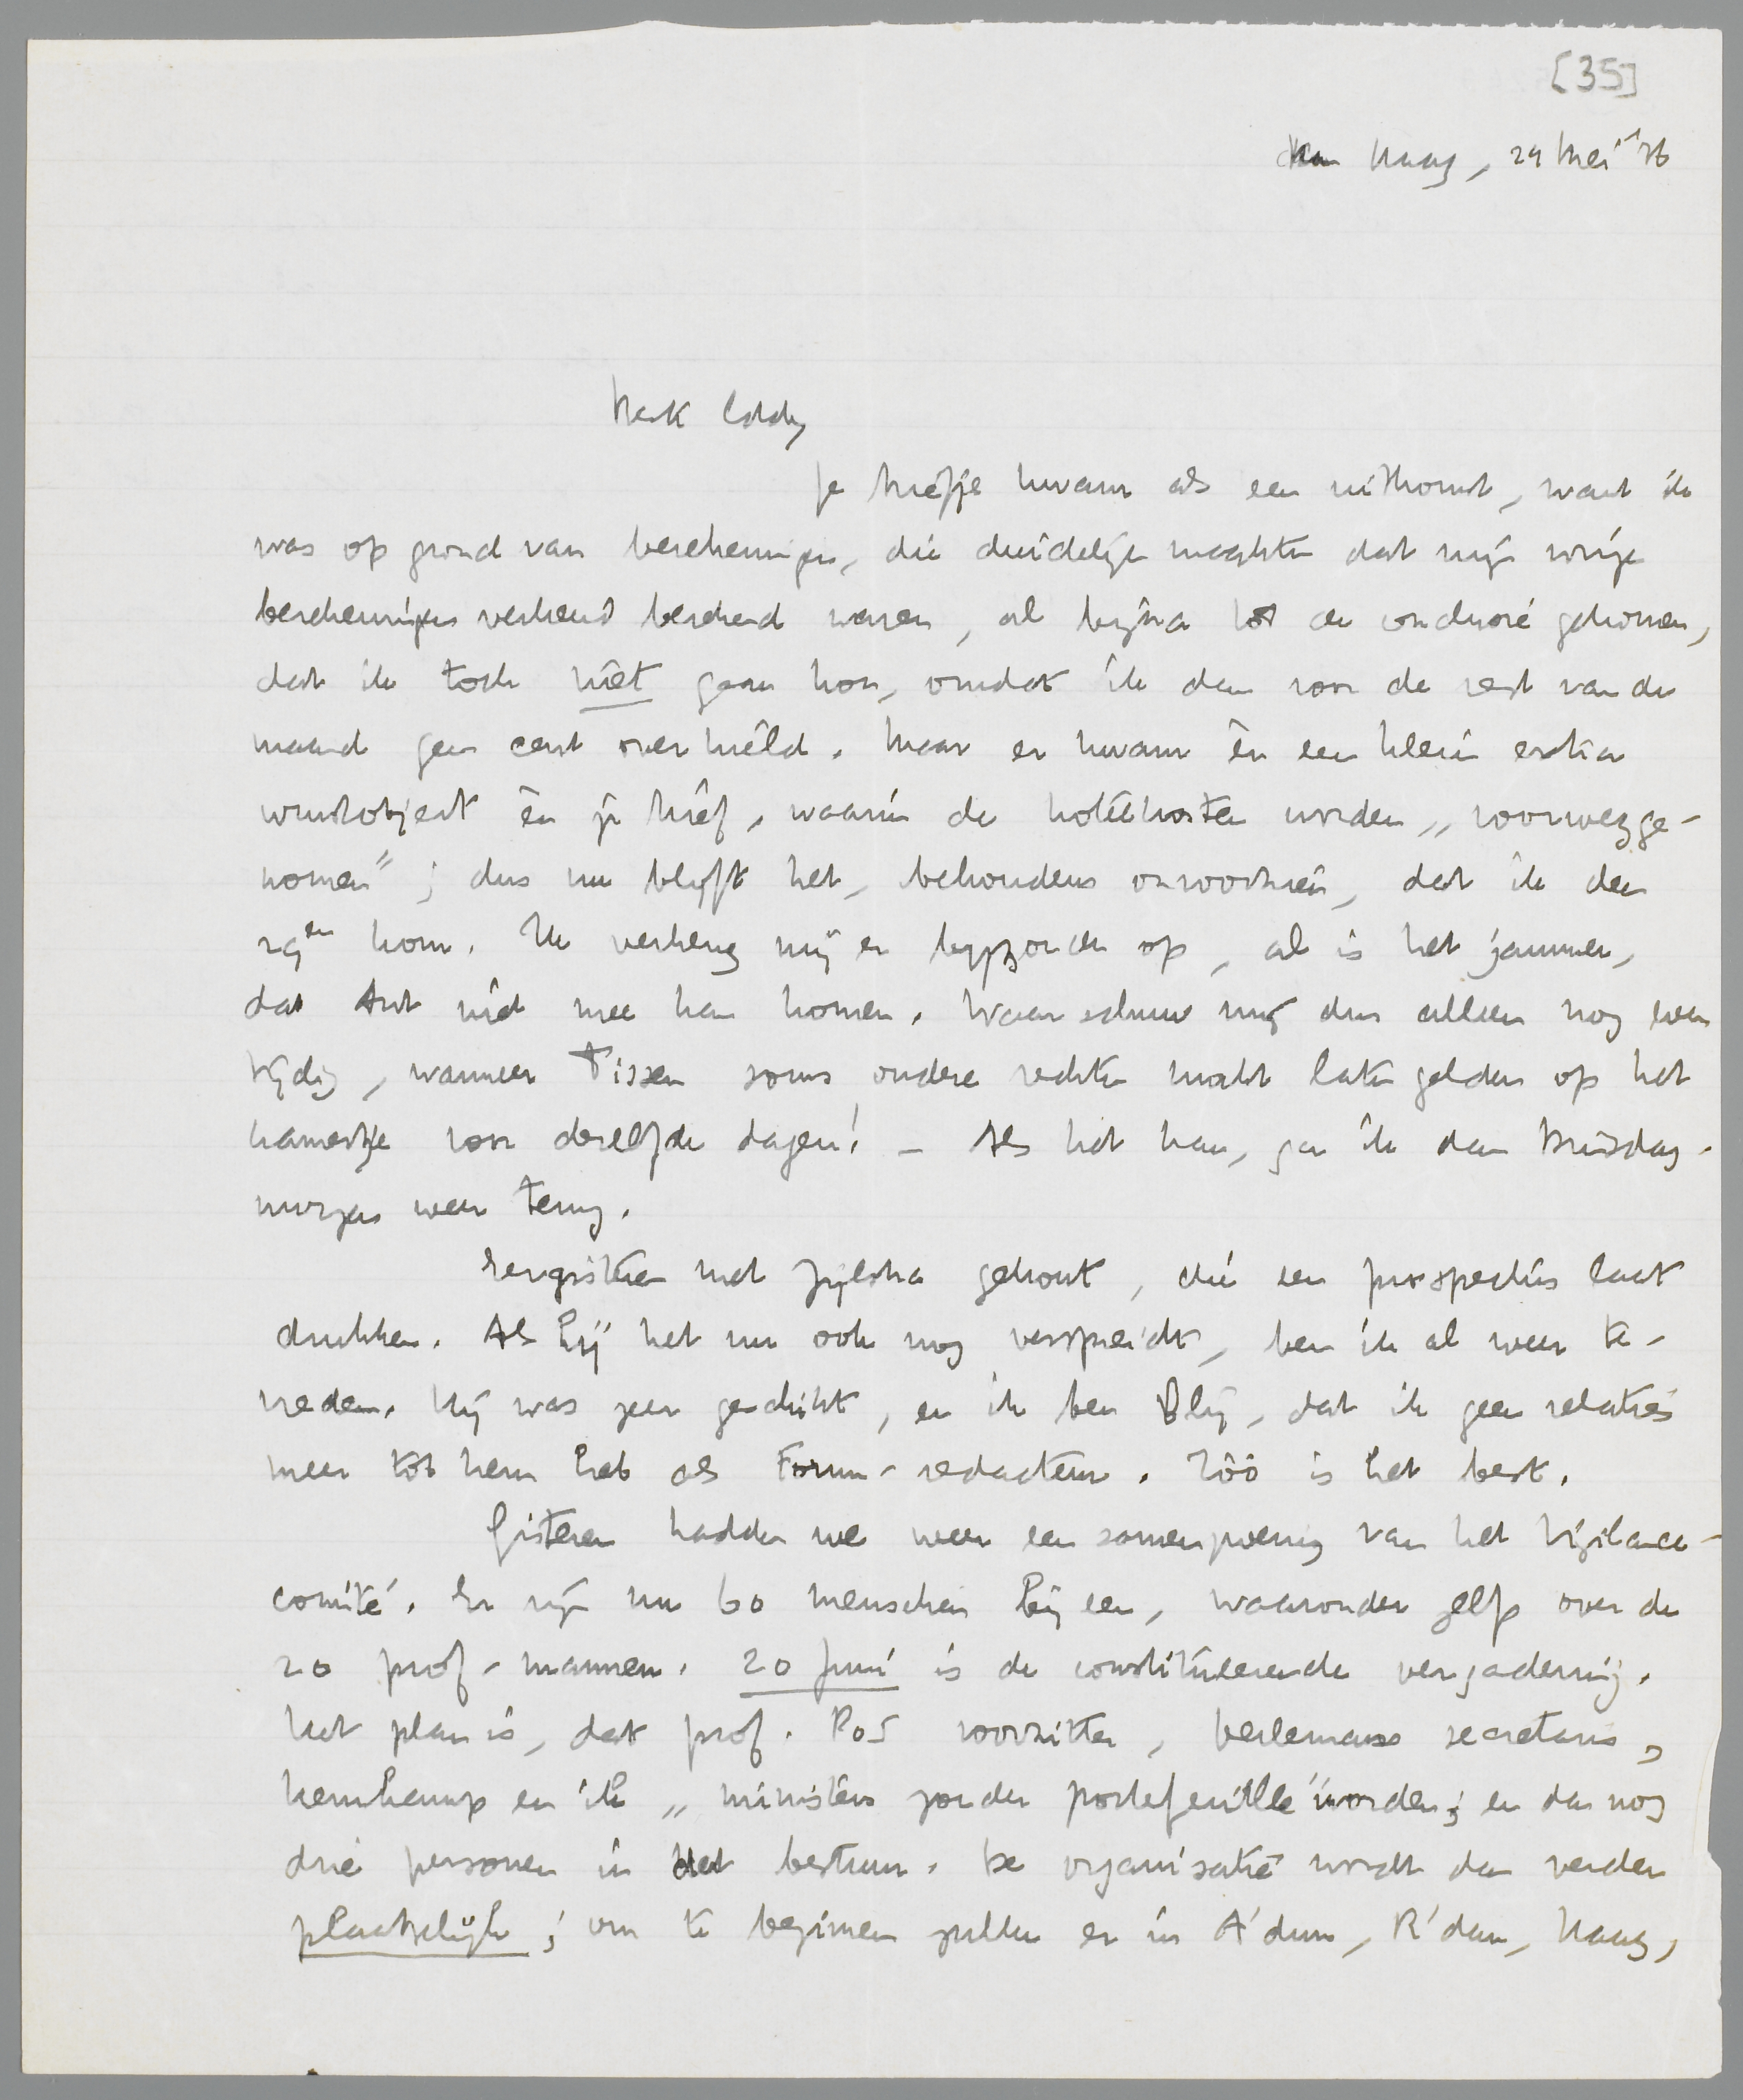 [35]
den Haag, 24 Mei '36
Beste Eddy
Je briefje kwam als een uitkomst, want ik
was op grond van berekeningen, die duidelijk maakten dat mijn vorige
berekeningen verkeerd berekend waren, al bijna tot de conclusie gekomen,
dat ik toch niet gaan kon, omdat ik dan voor de rest van de
maand geen cent over hield. Maar er kwam èn een klein extra
winstobject èn je brief, waarin de hotelkosten worden „voorwegge-
nomen"; dus nu blijft het, behoudens onvoorzien, dat ik den
29en kom. Ik verheug mij er bijzonder op, al is het jammer,
dat Ant niet mee kan komen. Waarschuw mij dus alleen nog even
tijdig, wanneer Tissen soms oudere rechten mocht laten gelden op het
kamertje voor dezelfde dagen! – Als het kan, ga ik dan Dinsdag-
morgen weer terug.
Eergisteren met Zijlstra gehokt, die een prospectus laat
drukken. Als hij het nu ook nog verspreidt, ben ik al weer te-
vreden. Hij was zeer geschikt, en ik ben blij, dat ik geen relaties
meer tot hem heb als Forum-redacteur. Zóó is het best.
Gisteren hadden we weer een samenzwering van het Vigilance-
comité. Er zijn nu 60 menschen bijeen, waaronder zelfs over de
20 prof-mannen. 20 Juni is de constitueerende vergadering.
Het plan is, dat prof. Pos voorzitter, Perlemans secretaris,
Kernkamp en ik „ministers zonder portefeuille" worden; en dan nog
drie personen in het bestuur. De organisatie wordt dan verder
plaatselijk; om te beginnen zullen er in A'dam, R'dam, Haag,